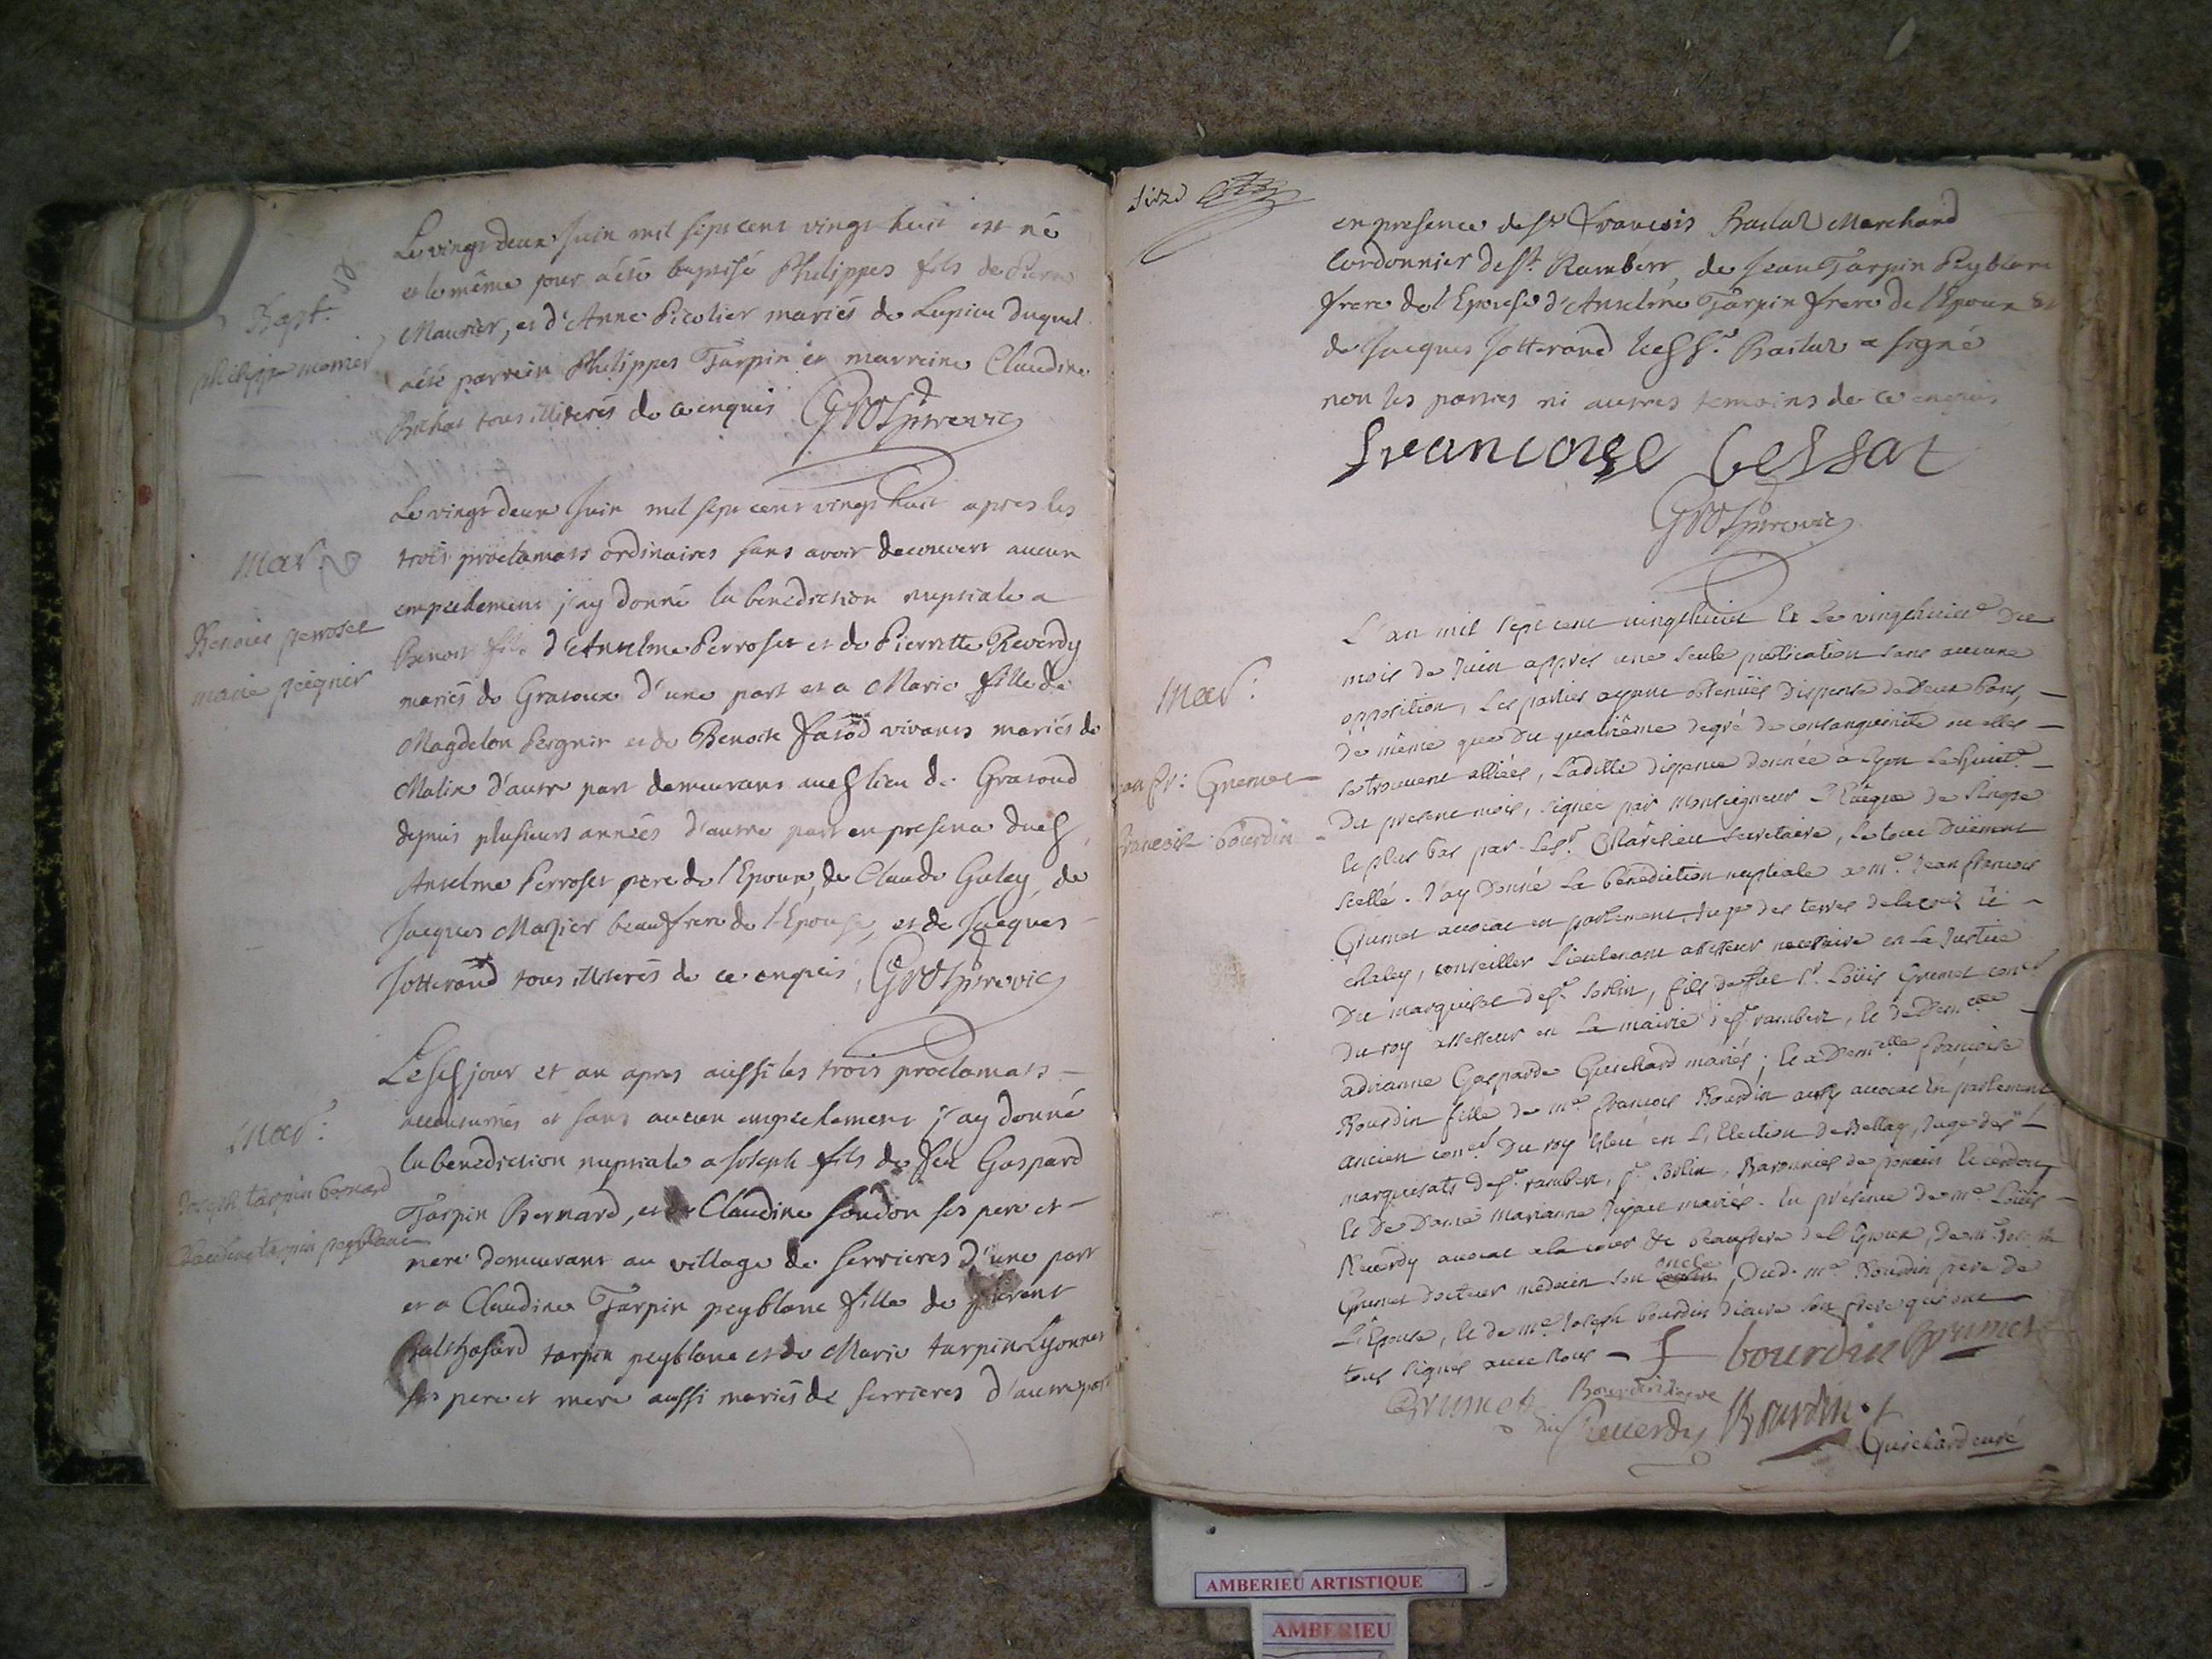 Le vingt deux Juin mil sept cent vingt huit est né
et le même jour a été baptisé Philippes fils de Pierre
Bapt.
Maunier, et d'Anne Picolier mariés de Lupieu duquel
philippe monier
a été parrein Philippes Tarpin et marreine Claudine
Bichat tous illiterés de ce enquis
Le vingt deux Juin mil sept cent vingt huit apres les
Mar.
trois proclamats ordinaires sans avoir decouvert aucun
empechement j'ay donné la benediction nuptiale a
Benoict perroset
Benoit fils d'Anselme Perroset et de Pierrette Reverdy
marie peignir
mariés de Gratoux d'une part et a Marie fille de
Magdelon Peignir et de Benoite favod vivants mariés de
Malix d'autre part demeurans lieu de Gratoud
depuis plusieurs années d'autre part en presence
Anselme Perroset pere de l'Epoux, de Claude Galey, de
Jacques Mazier beaufrere de l'Epouse, et de Jacques
Jotterand tous illiterés de ce enquis
jour et an apres aussi les trois proclamats
mar:
accoutumés et sans aucun empechement j'ay donné
la benediction nuptiale a Joseph fils de feu Gaspard
Joseph tarpin bernard
Tarpin Bernard, et de Claudine foudon ses pere et
Claudine tarpin peyblanc
mere demeurant au village de Serrieres d'une part
et a Claudine Tarpin peyblanc fille de
Balthasard tarpin peyblanc et de Marie tarpin Lyonnet
ses pere et mere aussi mariés de Serrieres d'autre part
en presence de Sr. François Marchand
Cordonnier de St. Rambert, de Jean Tarpin Peyblanc
frere de l'Epouse d'Anselme Tarpin frere de l'Epoux et
de Jacques Jotterand a signé
non les parties ni autres temoins de ce enquis
L'an mil sept cent vingthuit et le vingthuit.e du
Mar:
mois de Juin apprés une seule publication sans aucune
opposition, Les parties ayant obtenües dispense de deux bans,
de même que du quatrième degré de consanguinité ou elles
se trouvent alliées, Laditte dispense donnée à Lyon Le huit.e
fr: Grumet
du present mois, signée par Monseigneur L'Evêque de Sinope
francoise bourdin
et plus bas par Le Sr. secretaire, Le tout düement
scellé. J'ay donné La bénédiction nuptiale a m.e Jean francois
Grumet avocat en parlement, Juge des terres de
chaley, conseiller Lieutenant assesseur necessaire en La Justice
du marquisat de St. Sorlin, fils de feu Sr. Loüis Grumet con.er
du roy assesseur en La mairie de St. rambert, et de Dem.elle
adrianne Gasparde Guichard mariés; et a Dem.elle francoise
Bourdin fille de m.e francois Bourdin aussy avocat En parlement
ancien con.er du roy Eleu en L'Election de Belley, Juge des
marquisats de St. rambert, St. Sorlin, Baronnies de poncin et cerdon,
et De Dame Marianne mariés. En présence de m.e Loüis
Reverdy avocat a la cour et beaufrere de l'Epoux, de m.r Joseph
Grumet docteur medecin son oncle, dud. m.e Bourdin père de
L'Epouse, et de m.e Joseph bourdin diacre son frere qui ont
tous signés avec Nous
bourdin Grumet
Grumet Bourdin diacre
Reverdy Bourdin
Guichard curé
AMBERIEU ARTISTIQUE
AMBERIEU